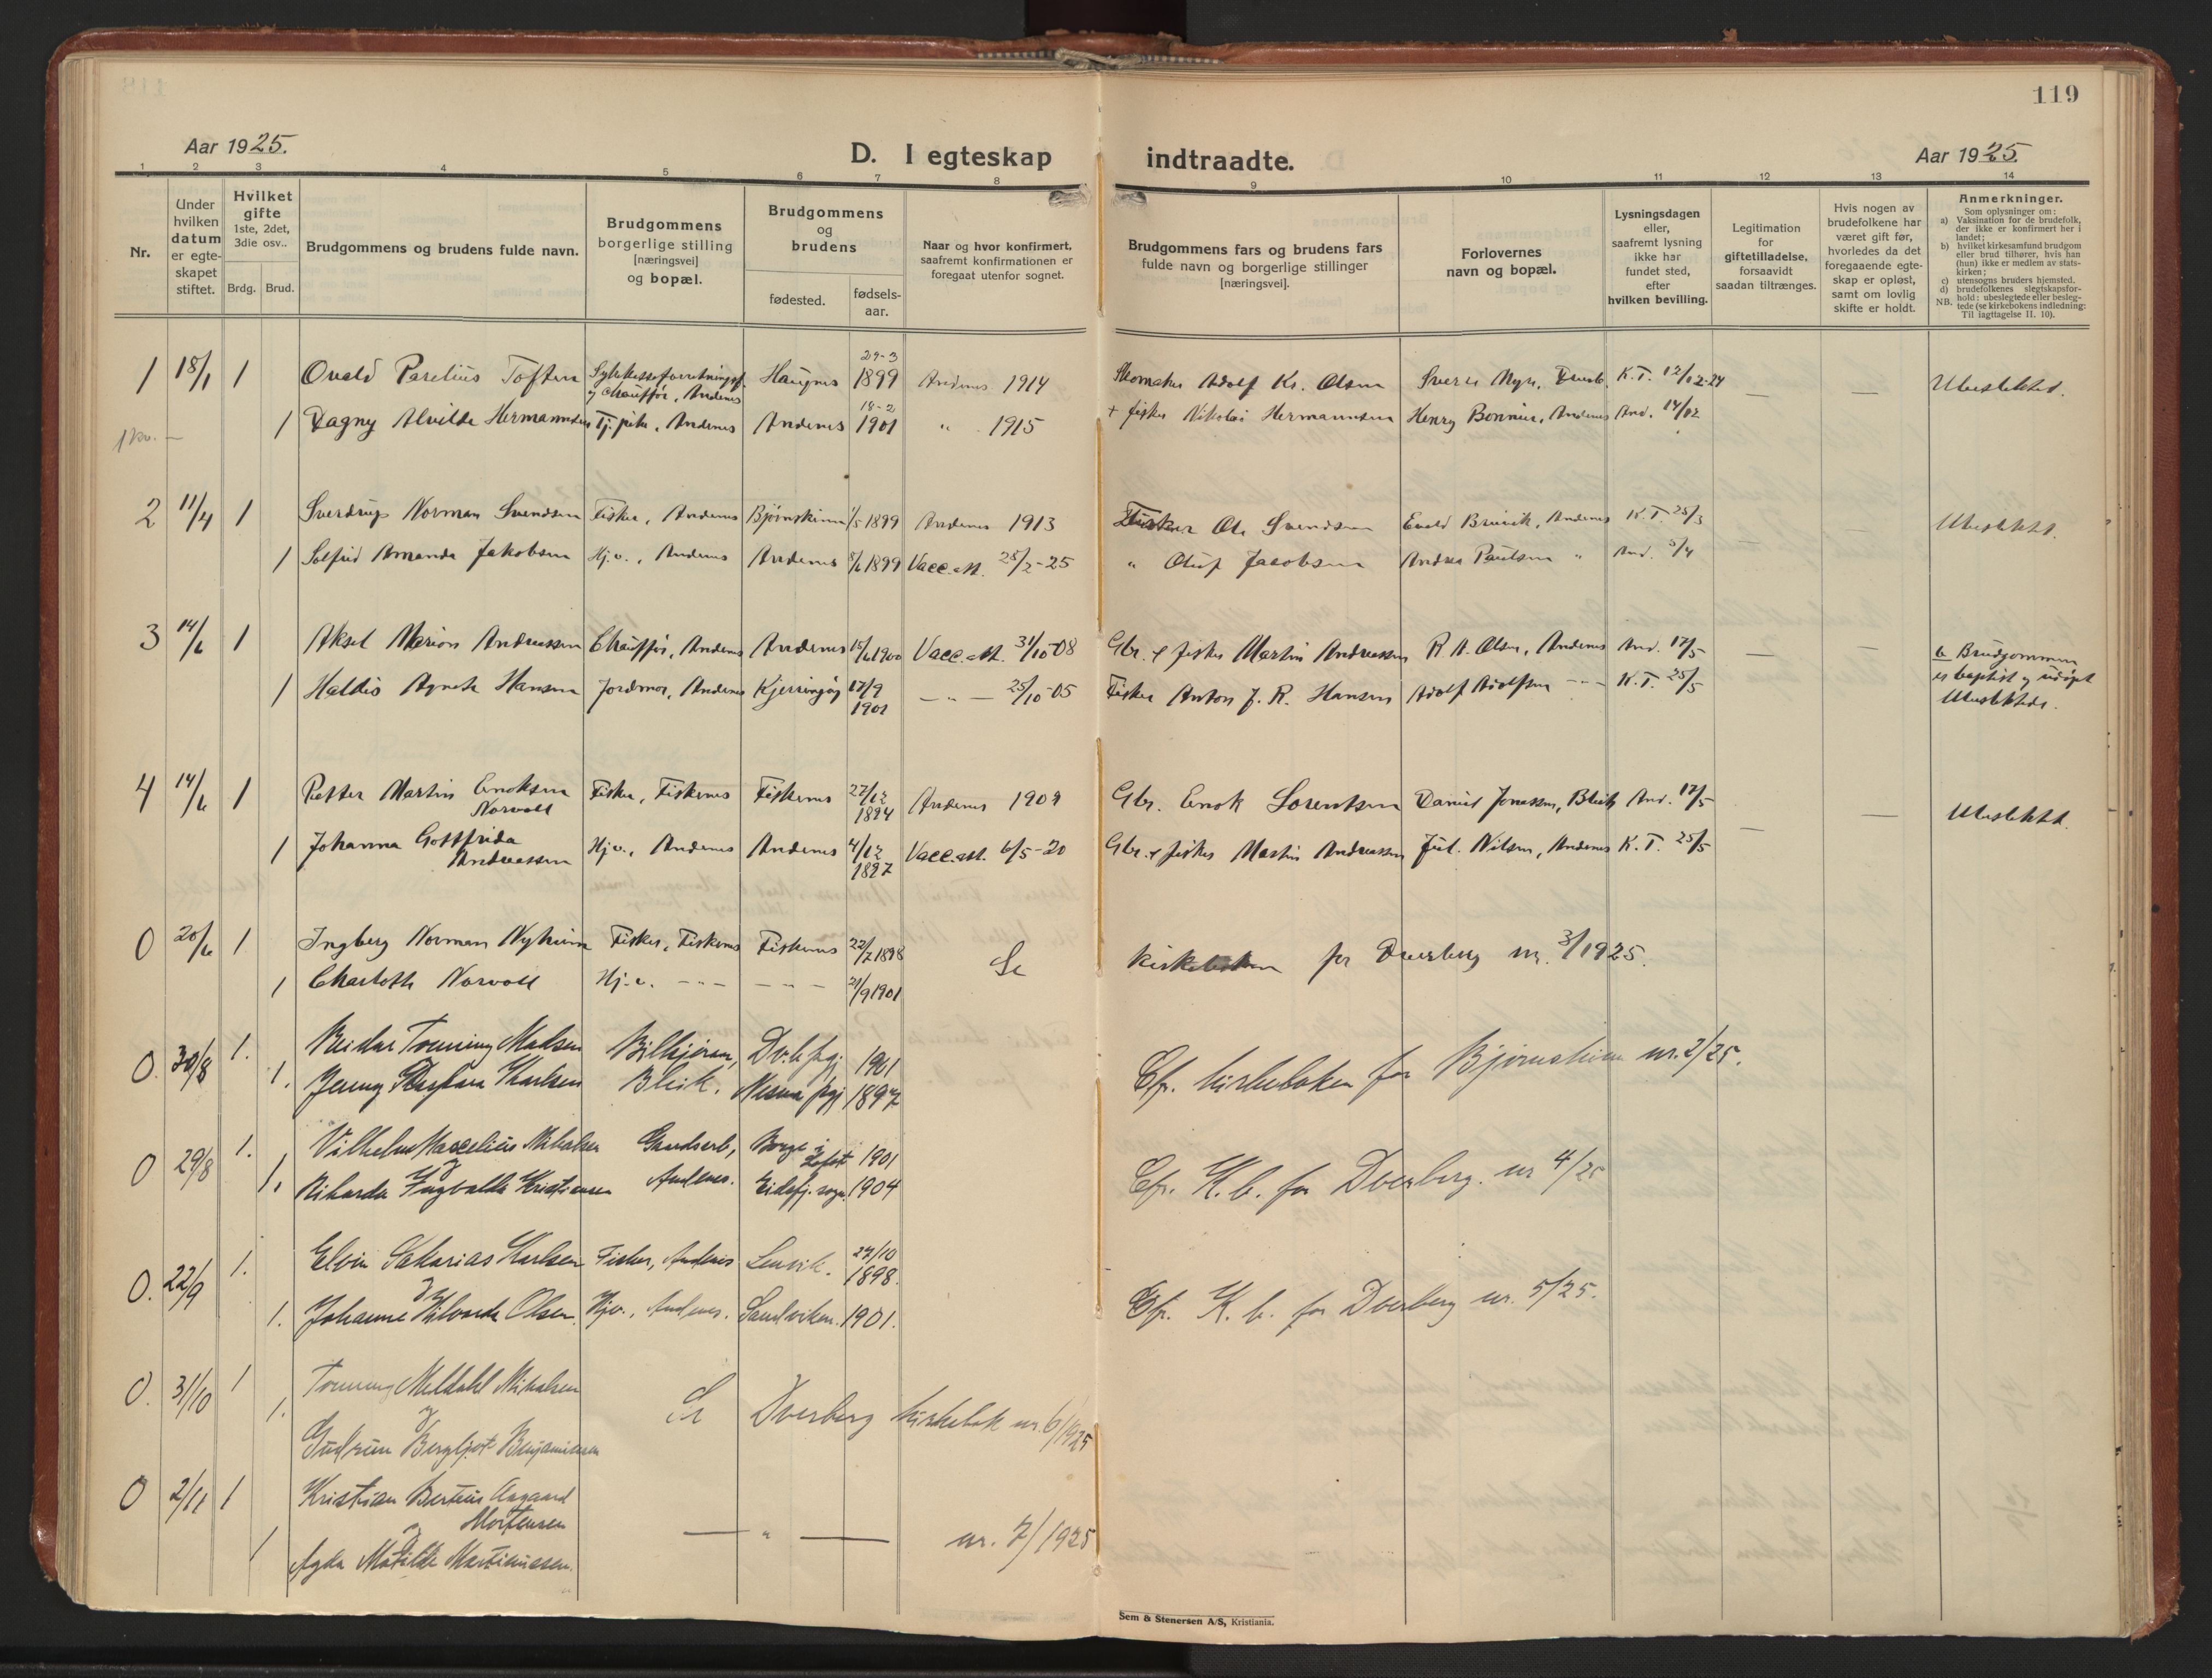 119
Aar 1925.
D. I egteskap indtraadte.
Aar 1925.
1 2 3 4 5 6 7 8 9 10 11 12 13 14
Nr.
Under hvilken datum er egte-skapet stiftet.
Hvilket gifte 1ste, 2det, 3die osv..
Brdg. Brud.
Brudgommens og brudens fulde navn.
Brudgommens borgerlige stilling [næringsvei] og bopæl.
Brudgommens og brudens
fødested.
fødsels-aar.
Naar og hvor konfirmert, saafremt konfirmationen er foregaat utenfor sognet.
Brudgommens fars og brudens fars fulde navn og borgerlige stillinger [næringsvei].
Forlovernes navn og bopæl.
Lysningsdagen eller, saafremt lysning ikke har fundet sted, efter hvilken bevilling.
Legitimation for giftetilladelse, forsaavidt saadan tiltrænges.
Hvis nogen av brudefolkene har været gift før, hvorledes da det foregaaende egte-skap er opløst, samt om lovlig skifte er holdt.
Anmerkninger.
Som oplysninger om:
a) Vaksination for de brudefolk, der ikke er konfirmert her i landet;
b) hvilket kirkesamfund brudgom eller brud tilhører, hvis han (hun) ikke er medlem av stats-kirken;
c) utensogns bruders hjemsted.
d) brudefolkenes slegtskapsfor-hold: ubeslegtede eller besleg-tede (se kirkebokens indledning: Til iagttagelse II. 10).
NB.
1 18/1 1 Ovald Parelius Toften Haugnes 29-3 1899 Andenes 1914 Skomaker Adolf Kr. Olsen Sverre Myre, K.T. 12/12-24 Ubeslektet.
og Chauffør, Andenes
1 Dagny Alvilde Hermannsen Tj.pike, Andenes Andenes 18-2 1901 " 1915 + fisker Nikolai Hermannsen Henry Bonnier, Andenes And. 14/12
2 11/4 1 Sverdrup Norman Svendsen Fisker, Andenes Bjørnskinn 1/5 1899 Andenes 1913 Fisker Ole Svendsen Evald Bruvik, Andenes K.T. 25/3 Ubeslektet.
1 Solfrid Amanda Jakobsen Hj.v., Andenes Andenes 8/6 1899 Vacc.att. 25/2-25 " Oluf Jacobsen Andrea Paulsen " And. 5/4
3 14/6 1 Aksel Marion Andreassen Chauffør, Andenes Andenes 15/6 1900 Vacc.att. 31/10-08 Gbr. & fisker Martin Andreassen R. A. Olsen, Andenes And. 17/5 b Brudgommen
er baptist og udøpt
1 Haldis Agnete Hansen Jordmor, Andenes Kjerringøy 17/9 1901 — " — 25/10-05 Fisker Anton J. R. Hansen Adolf Adolfsen — " — K.T. 25/5 Ubeslektede.
4 14/6 1 Petter Martin Enoksen Norvoll Fisker, Fiskenes Fiskenes 27/12 1894 Andenes 1909 Gbr. Enok Sørentsen Daniel Jonassen, Bleik And. 17/5 Ubeslektet.
1 Johanna Gottfrida Andreassen Hj.v., Andenes Andenes 4/12 1897 Vacc.att. 6/5-20 Gbr. & fisker Martin Andreassen Jul. Nilsen, Andenes K.T. 25/5
0 20/6 1 Ingberg Norman Nyheim Fisker, Fiskenes Fiskenes 22/7 1898 Se kirkeboken for Dverberg nr. 3/1925.
1 Charlotte Norvoll Hj.v. — " — — " — 21/9 1901
0. 30/8 1. Reidar Tonning Madsen Bilkjører, Dv.b. prgj. 1901 Cfr. kirkeboken for Bjørnskinn nr. 2/25.
1. Jenny Karlsen Bleik. Nesna prgj 1897
0 29/8 1. Vilhelm Marselius Mikalsen Grundarb., Borge i Lofot 1901 Cfr. K.b. for Dverberg. nr 4/25
og
1. Rikarda Ingvalda Kristiansen Andenes. Eidsfj. sogn. 1904
0. 22/9 1. Elvin Sakarias Karlsen Fisker, Andenes Lenvik. 27/10 1898. Cfr. K.b. for Dverberg nr. 5/25.
og
1. Johanne Olsen. Hjv., Andenes. Sandviken. 1901.
0. 31/10 1 Tonning Meldahl Mikalsen Se Dverberg kirkebok nr. 6/1925
og
1. Gudrun Bergljot Benjaminsen
0 2/11 1 Kristian Berteus Aagaard Mortensen — " — nr. 7/1925
og
1 Agda Matilde Martinussen.
Sem & Stenersen A/S, Kristiania.